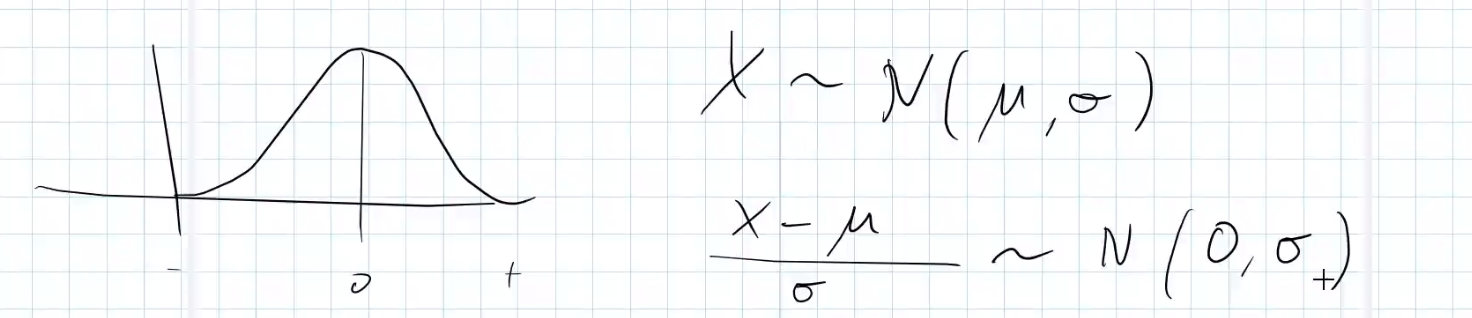 X ~ N(μ, σ)
(X - μ)/σ ~ N(0, σ)
- 0 +